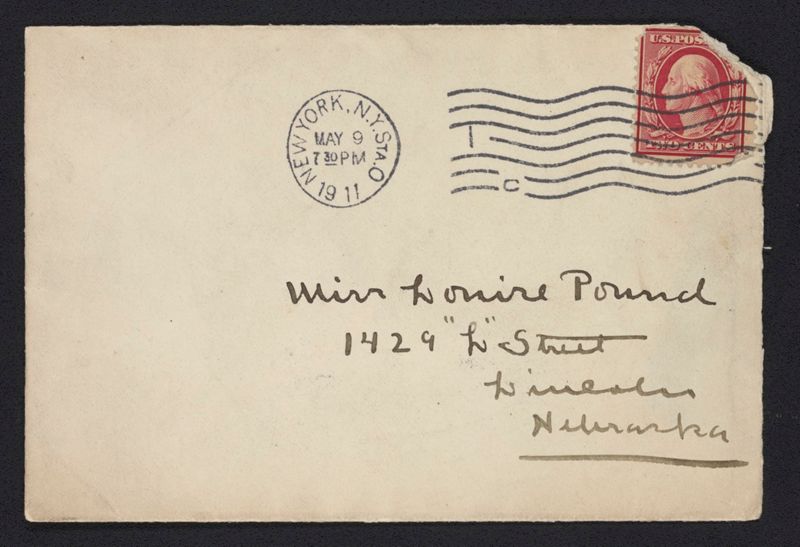 U.S. POS
NEW YORK, N.Y. STA. O
MAY 9
7 30 PM
1911
TWO CENTS
I
C
Miss Louise Pound
1429 "L" Street
Lincoln
Nebraska